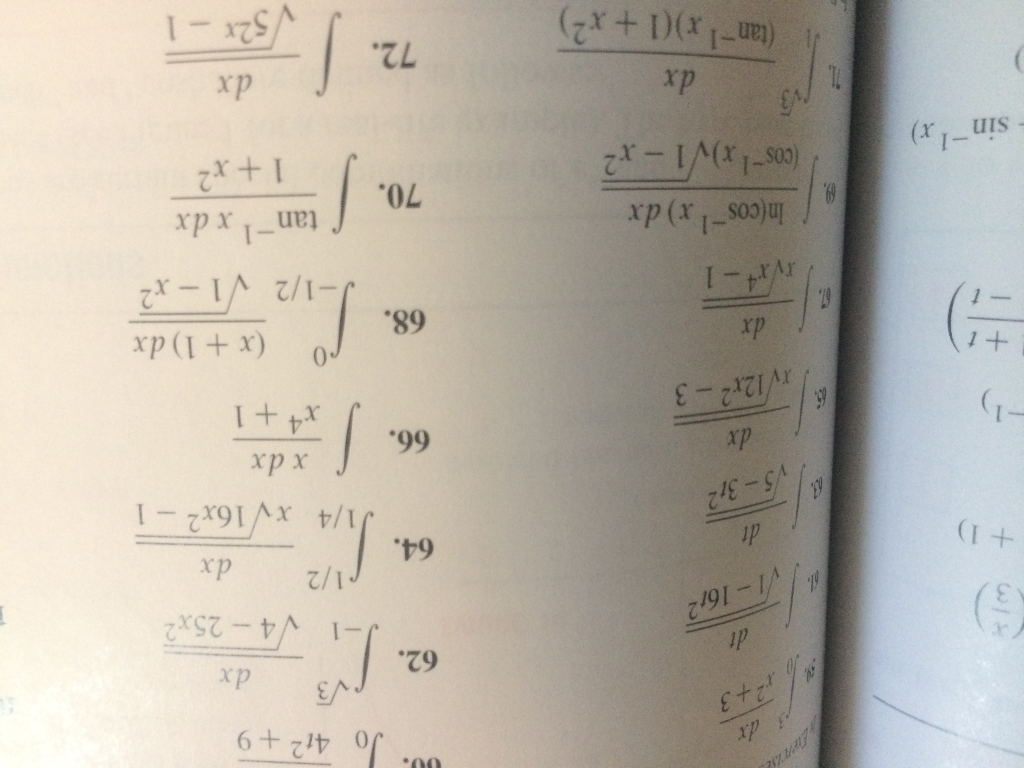 (x/3)
+ 1)
−1)
+ t / − t)
sin⁻¹ x)
Exercises
59. ∫₀³ dx / (x² + 3)
60. ∫₀ 4t² + 9
61. ∫ dt / √(1 − 16t²)
62. ∫₋₁^√3 dx / √(4 − 25x²)
63. ∫ dt / √(5 − 3t²)
64. ∫_{1/4}^{1/2} dx / (x√(16x² − 1))
65. ∫ dx / (x√(12x² − 3))
66. ∫ x dx / (x⁴ + 1)
67. ∫ dx / (x√(x⁴ − 1))
68. ∫_{−1/2}^{0} (x + 1) dx / √(1 − x²)
69. ∫ ln(cos⁻¹ x) dx / ((cos⁻¹ x)√(1 − x²))
70. ∫ tan⁻¹ x dx / (1 + x²)
71. ∫₁^√3 dx / ((tan⁻¹ x)(1 + x²))
72. ∫ dx / √(5²ˣ − 1)